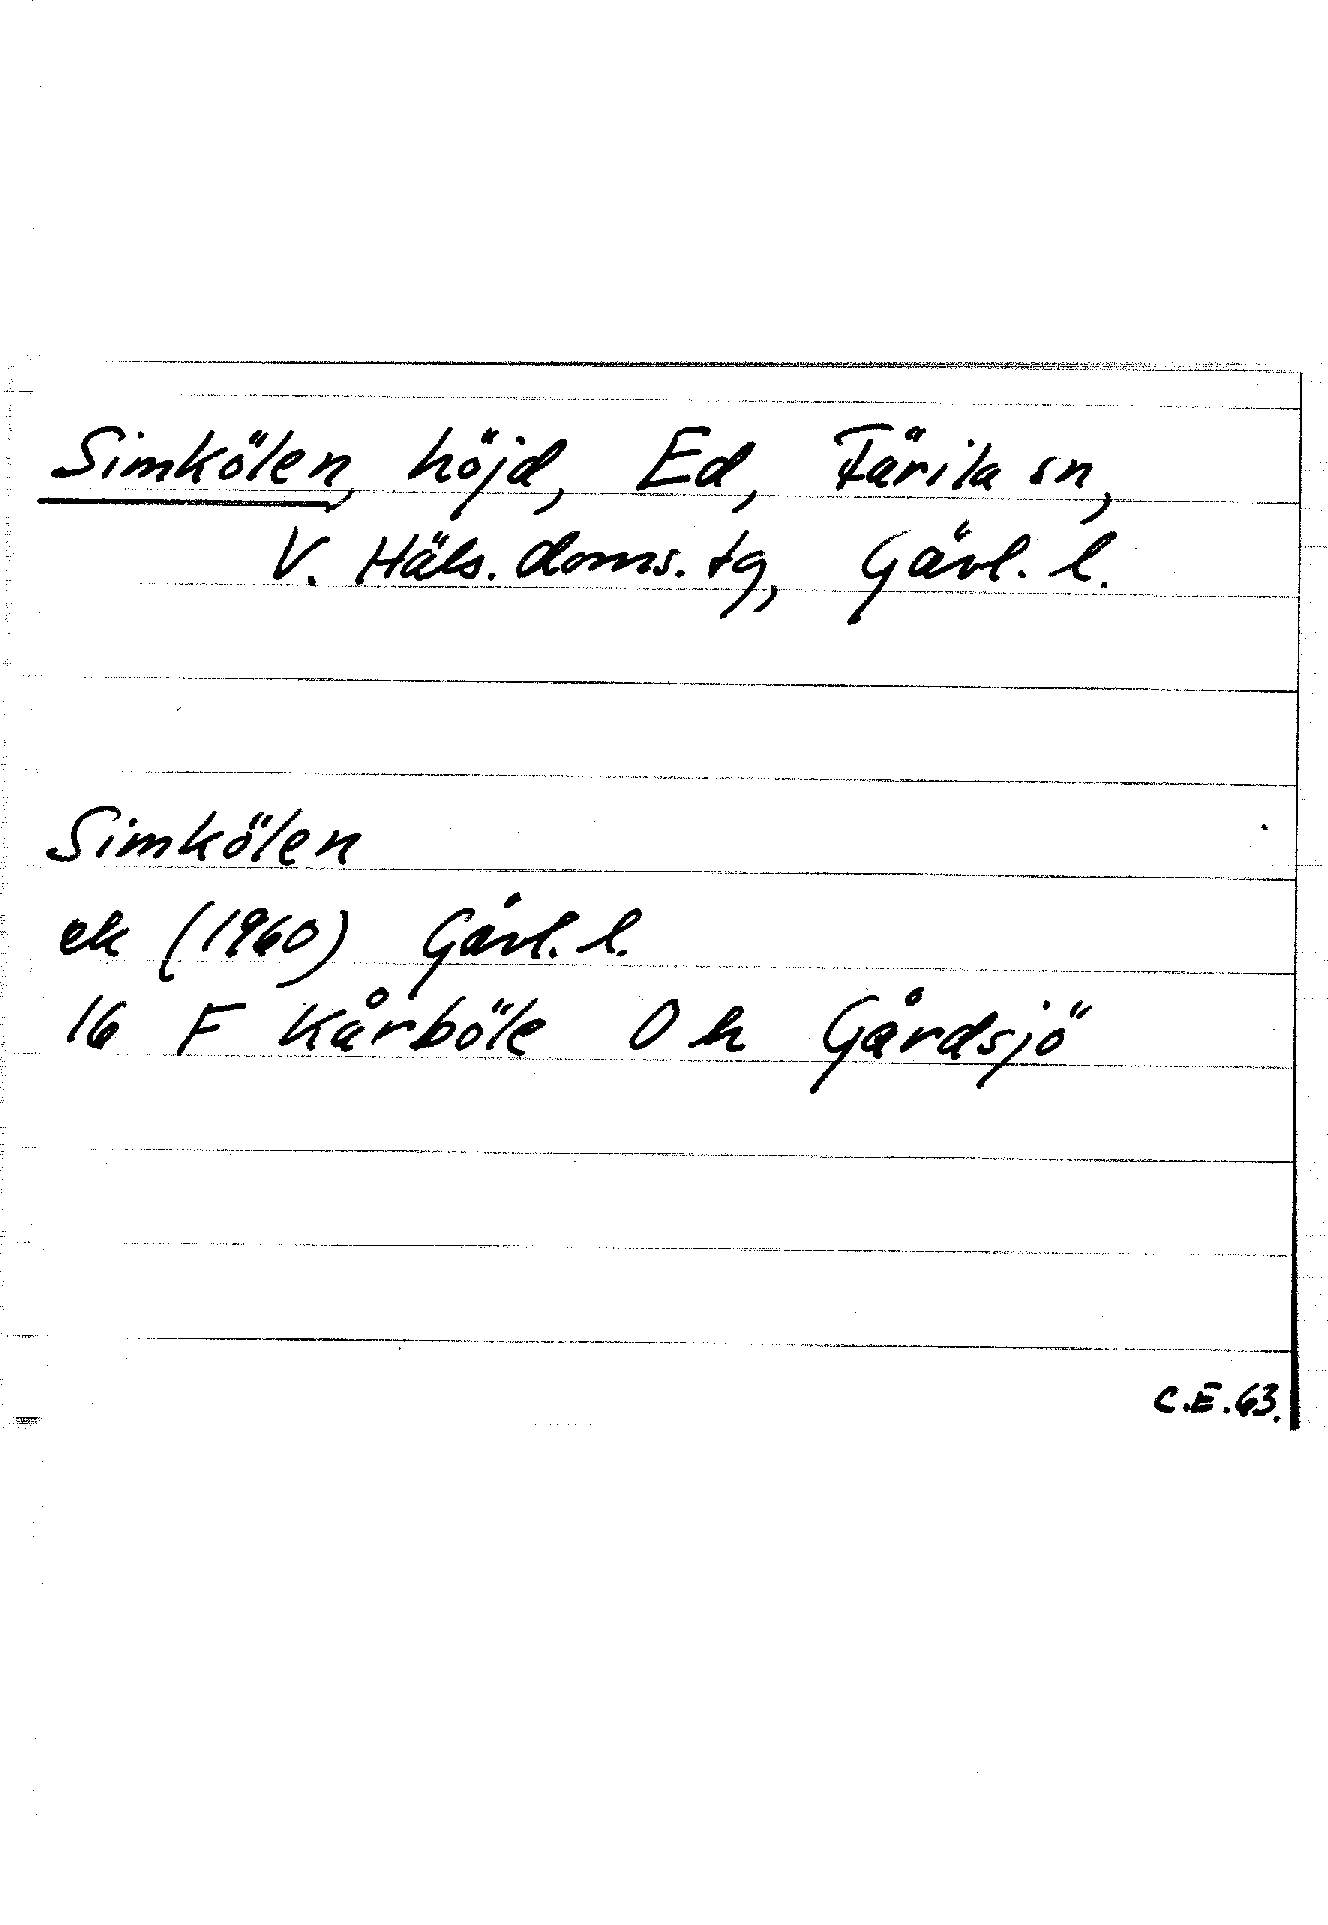 Simkölen, höjd, Ed, Färila sn,
V. Häls. doms. tg, Gävl. l.
Simkölen
ek (1960) Gävl. l.
16 F Kårböle O h Gårdsjö
C.E.63.